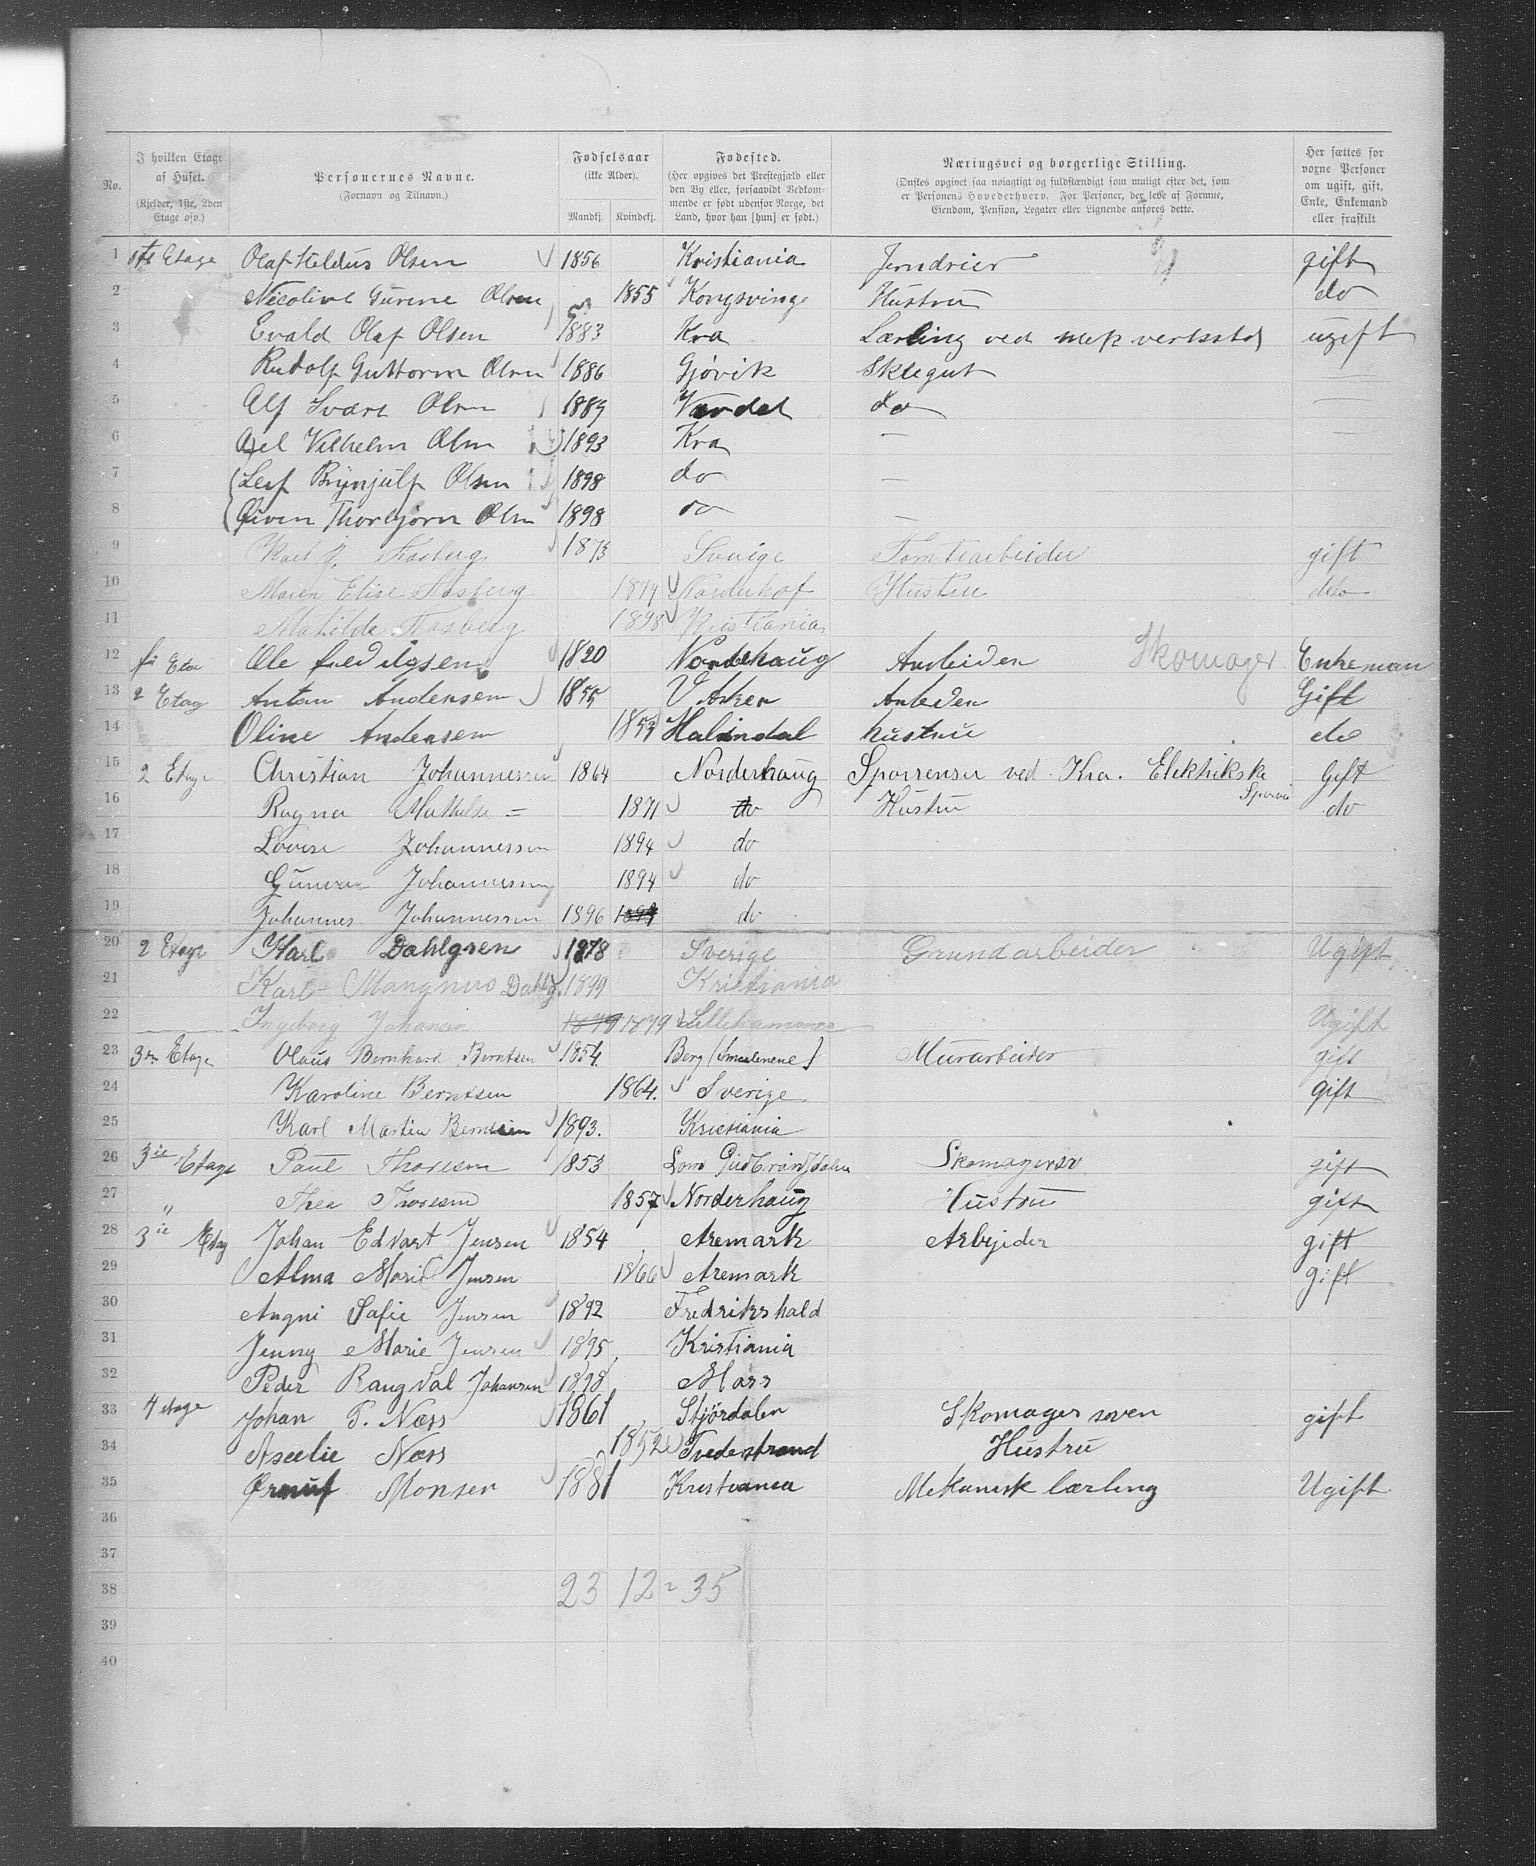 No. I hvilken Etage af Huset. (Kjelder, 1ste, 2den Etage osv.) Personernes Navne. (Fornavn og Tilnavn.) Fødselsaar (ikke Alder). Mandkj. Kvindekj. Fødested. (Her opgives det Prestegjæld eller den By eller, forsaavidt Vedkommende er født udenfor Norge, det Land, hvor han [hun] er født.) Næringsvei og borgerlige Stilling. (Ønskes opgivet saa nøiagtigt og fuldstændigt som muligt efter det, som er Personens Hovederhverv. For Personer, der leve af Formue, Eiendom, Pension, Legater eller Lignende anføres dette. Her sættes for voxne Personer om ugift, gift, Enke, Enkemand eller fraskilt
1 1ste Etage Olaf Olsen 1856 Kristiania Jerndreier gift
2 Nicoline Gurine Olsen 1855 Kongsvinge Hustru do
3 Evald Olaf Olsen 1883 Kra Lærling ved mek verksted ugift
4 Rudolf Guttorm Olsen 1886 Gjøvik Sklegut —
5 Alf Svære Olsen 1889 Vardal do —
6 Axel Vilhelm Olsen 1893 Kra —
7 Leif Brynjulf Olsen 1898 do —
8 Øiven Thorbjørn Olsen 1898 do —
9 Karl J. Aasberg 1873 Sverige Tomtearbeider gift
10 Maren Elise Aasberg 1879 Norderhof Hustru dito
11 Mathilde Aasberg 1898 Kristiania
12 Ole 1820 Norderhaug Arbeider Skomager Enkeman
13 2 Etag Anton Andersen 1855 V Aker Arbeder Gift
14 Oline Andersen Halindal hustru do
15 2 Etage Christian Johannessen 1864 Norderhaug Sporrenser ved Kra. Elektriske Sporvei Gift
16 Ragna Mathilde = 1871 do Hustru do
17 Lovise Johannessen 1894 do
18 Gunvor Johannessen 1894 do
19 Johannes Johannessen 1896 do
20 2 Etage Karl Dahlgren 1878 Sverige Grundarbeider Ugift
21 Karl Mangnus Dahlg. 1899 Kristiania
22 Ingeborg Johansen 1879 1879 Lillehammer Ugift
23 3de Etage Olaus Bernhard Berntsen 1854. Berg (Smaalenene) Murarbeider gift
24 Karoline Berntsen 1864. Sverige gift
25 Karl Martin Berntsen 1893. Kristiania
26 3die Etage Paul Thoresen 1853 Lom Gudbrandsdalen Skomagersv gift
27 " Thea Thoresen 1857 Norderhaug Hustru gift
28 3die Etag Johan Edvart Jensen 1854 Aremark Arbejder gift
29 Alma Marie Jensen 1866 Aremark gift
30 Angni Safie Jensen 1892 Fredrikshald
31 Jenny Marie Jensen 1895 Kristiania
32 Peder Rangval Johansen 1898 Moss
33 4 etage Johan P. Næss 1861 Stjördalen Skomager sven gift
34 Aselie Næss 1852 Tvedestrand Hustru
35 Monsen 1881 Kristiania Mekanisk lærling Ugift
36
37
38 23 12 = 35
39
40